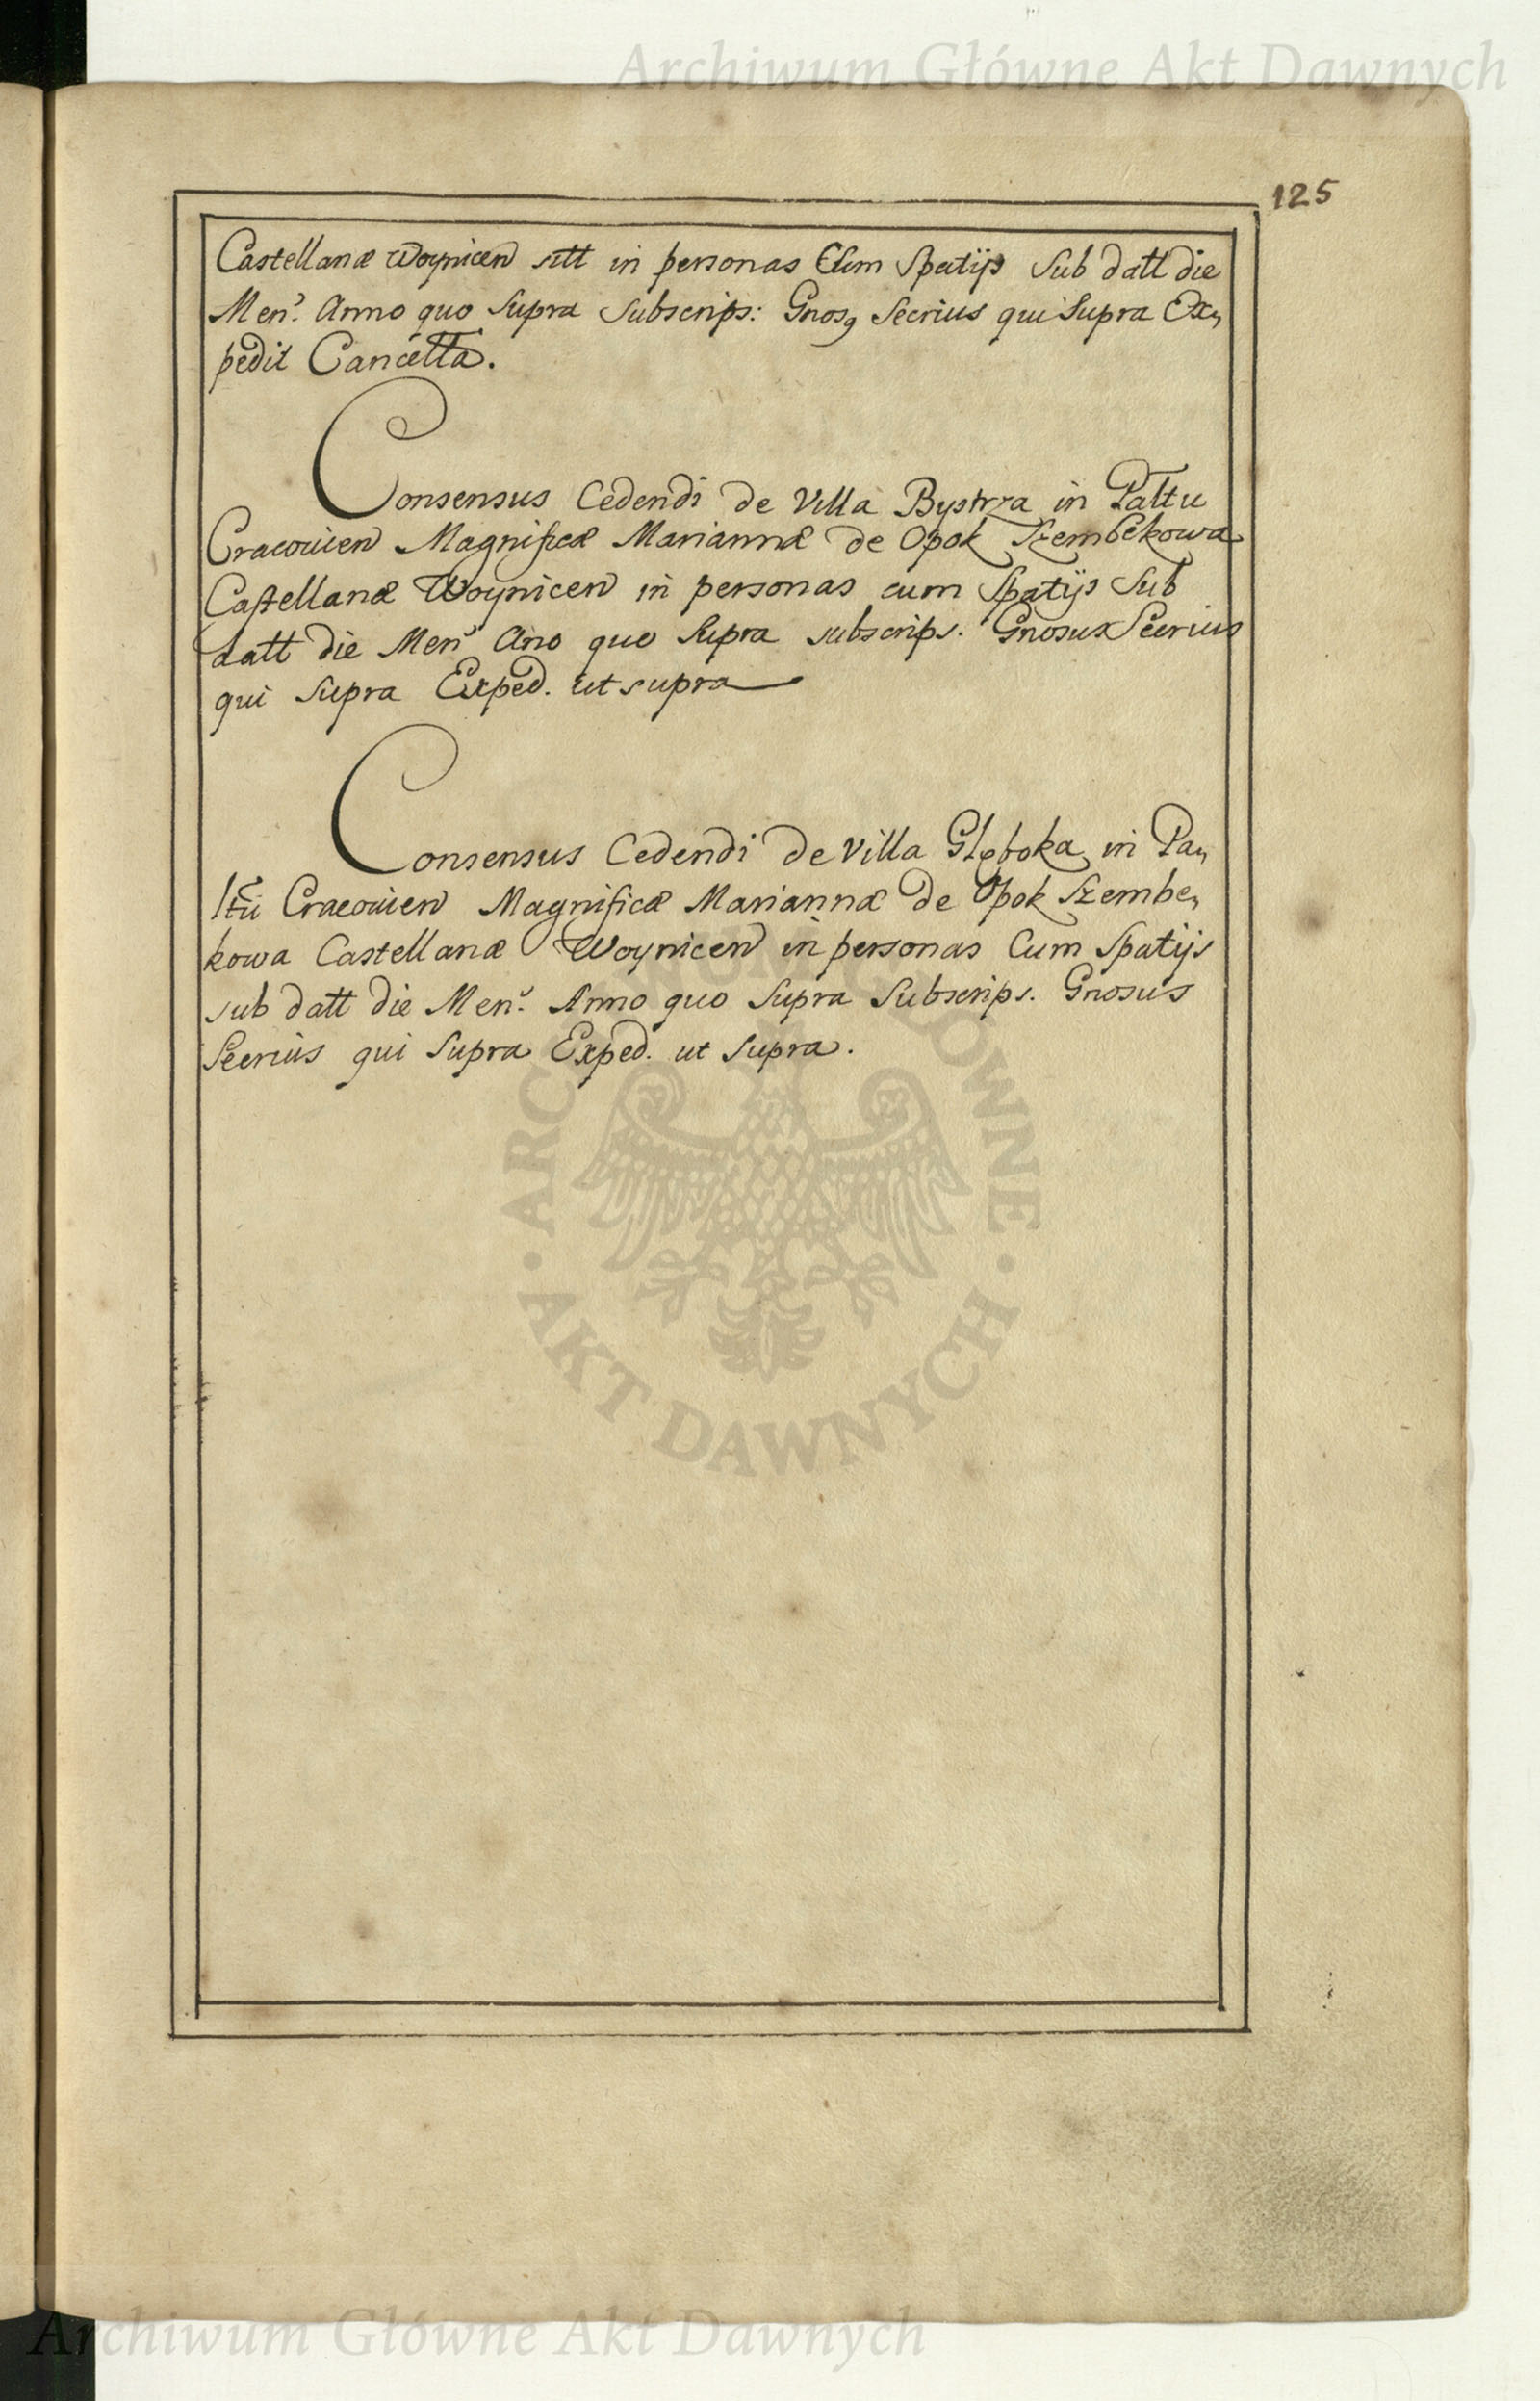 Archiwum Główne Akt Dawnych
125
Castellanæ Woynicen sitt in personas Cum Spatijs Sub datt die
Men? Anno quo Supra Subscrips: Gnosq Secrius qui Supra Ex,
pedit Cancella.
Consensus Cedendi de Villa Bystrza in Paltu
Cracouien Magnificæ Mariannæ de Opok Szembekowa
Castellanæ Woynicen in personas cum Spatijs Sub
datt die Men? Ano quo Supra subscrips. Gnosus Secrius
qui Supra Exped. ut supra
Consensus Cedendi de Villa Głęboka in Pa,
ltu Cracouien Magnificæ Mariannæ de Opok Szembe,
kowa Castellanæ Woynicen in personas Cum Spatijs
sub datt die Men? Anno quo Supra Subscrips. Gnosus
Secrius qui Supra Exped. ut Supra.
ARCHIWUM GŁÓWNE
AKT DAWNYCH
Archiwum Główne Akt Dawnych